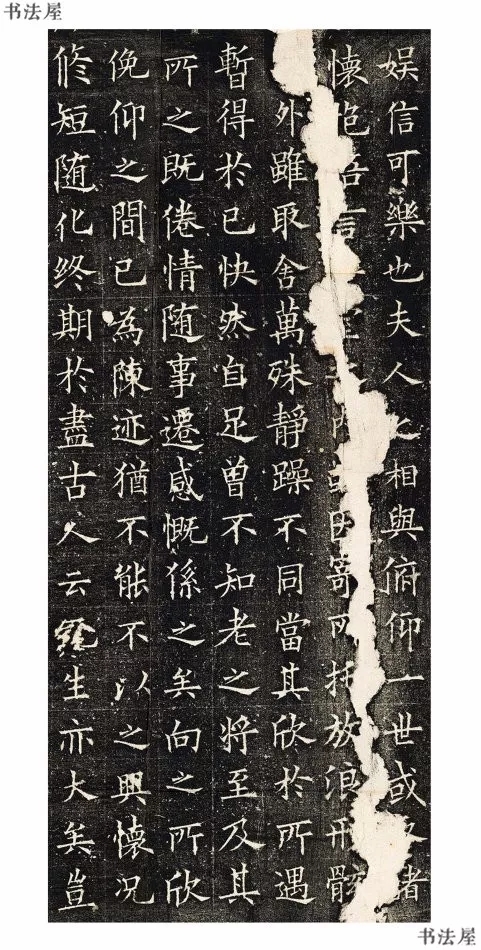 书法屋
娱信可樂也夫人之相與俯仰一世或
懷因寄所托放浪形骸
外雖取舍萬殊靜躁不同當其欣於所遇
暫得於己快然自足曾不知老之将至及其
所之既倦情随事遷感慨係之矣向之所欣
俛仰之間已為陳迹猶不能不以之興懷况
修短随化终期於盡古人云死生亦大矣豈
书法屋